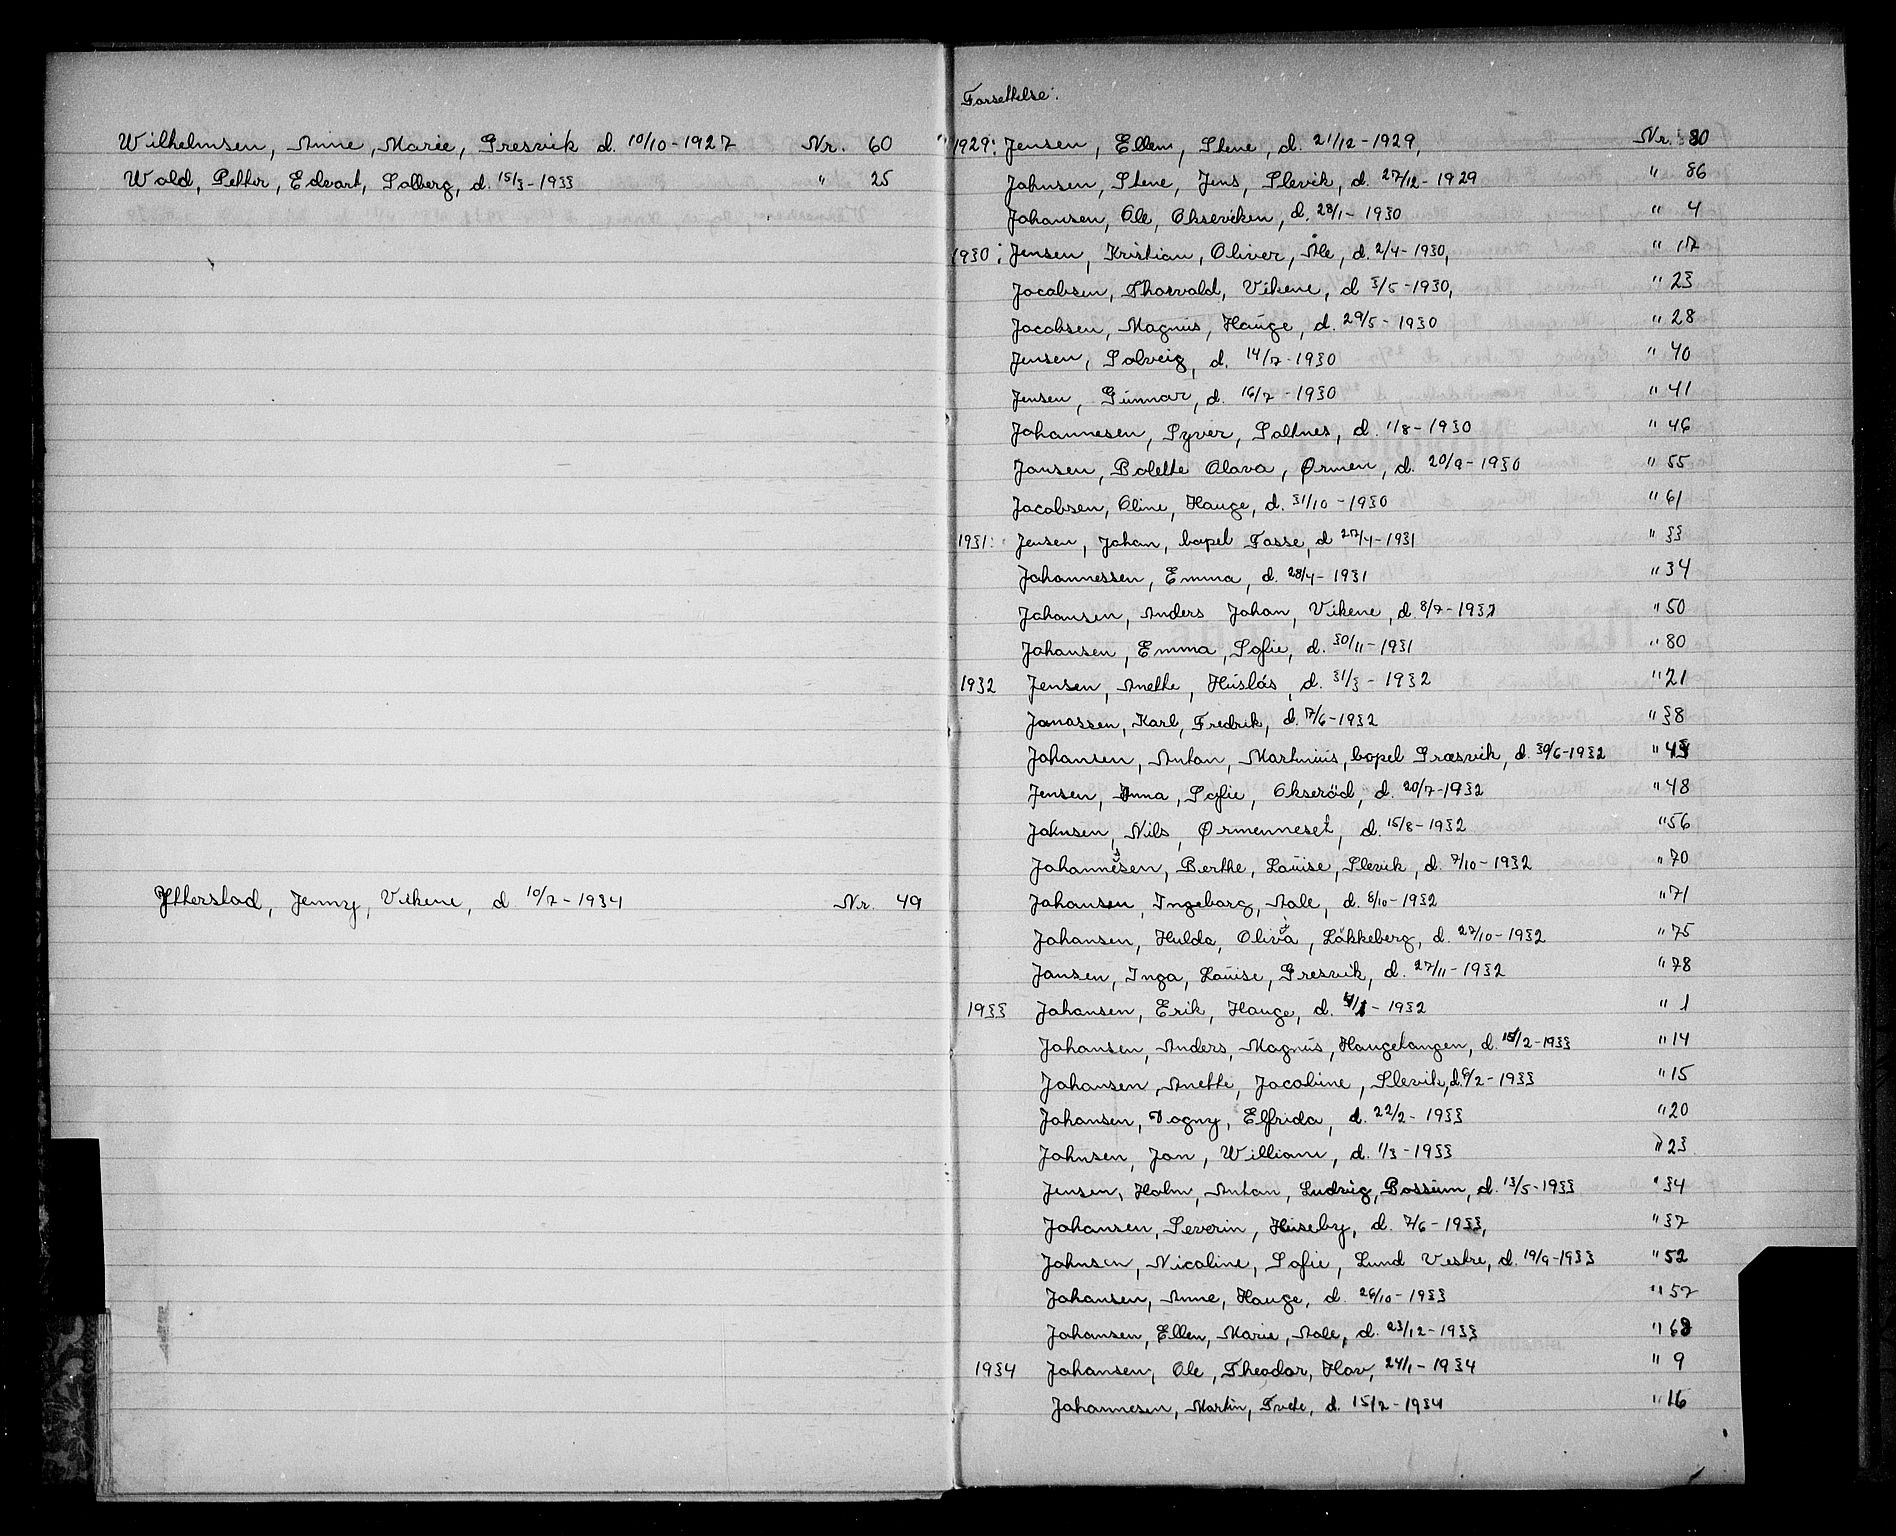 Wilhelmsen, Anne, Marie, Gresvik d. 10/10-1927 Nr. 60
Wold, Petter, Edvart, Solberg, d. 15/3-1933 " 25
Ytterstad, Jenny, Vikene, d 10/7-1934 Nr. 49
Forsettelse:
1929: Jensen, Ellen, Stene, d. 21/12-1929, Nr. 80
Johnsen, Stene, Jens, Slevik, d. 27/12-1929 " 86
Johansen, Ole, Okseviken, d. 28/1-1930 " 4
1930: Jensen, Kristian, Oliver, Åle, d. 2/4-1930, " 17
Jacobsen, Thorvald, Vikene, d 3/5-1930, " 23
Jacobsen, Magnus, Hauge, d. 29/5-1930 " 28
Jensen, Solveig, d. 14/7-1930 " 40
Jensen, Gunnar, d. 16/7-1930 " 41
Johannesen, Syver, Saltnes, d. 1/8-1930 " 46
Jansen, Bolette Olava, Ørmen, d. 20/9-1930 " 55
Jacobsen, Oline, Hauge, d. 31/10-1930 " 61
1931: Jensen, Johan, bopel Fosse, d 27/4-1931 " 33
Johannessen, Emma, d. 28/4-1931 " 34
Johansen, Anders Johan, Vikene, d. 8/7-1931 " 50
Johansen, Emma, Sofie, d. 30/11-1931 " 80
1932 Jensen, Anette, Huslås, d. 31/3-1932 " 21
Jonassen, Karl, Fredrik, d. 7/6-1932 " 38
Johansen, Anton, Martinius, bopel Græsvik, d. 30/6-1932 " 43
Jensen, Anna, Sofie, Okseröd, d. 20/7-1932 " 48
Johnsen, Nils, Ørmenneset, d. 15/8-1932 " 56
Johannesen, Berthe, Louise, Slevik, d. 7/10-1932 " 70
Johansen, Ingeborg, Aale, d. 8/10-1932 " 71
Johansen, Hulda, Olivia, Løkkeberg, d. 27/10-1932 " 75
Jansen, Inga, Louise, Gresvik, d. 27/11-1932 " 78
1933 Johansen, Erik, Hauge, d. 4/1-1932 " 1
Johansen, Anders, Magnus, Haugetangen, d. 15/2-1933 " 14
Johansen, Anette, Jacobine, Slevik, d. 6/2-1933 " 15
Johansen, Dagny, Elfrida, d. 22/2-1933 " 20
Johnsen, Jan, William, d. 1/3-1933 " 23
Jensen, Holm, Anton, Ludvig, Bossum, d. 13/5-1933 " 34
Johansen, Severin, Huseby, d. 7/6-1933, " 37
Johnsen, Nicoline, Sofie, Lund Vestre, d. 19/9-1933 " 52
Johansen, Anne, Hauge, d. 26/10-1933 " 57
Johansen, Ellen, Marie, Aale, d. 23/12-1933 " 68
1934 Johansen, Ole, Theodor, Hov, 24/1-1934 " 9
Johannesen, Martin, Tvete, d. 15/2-1934 " 16